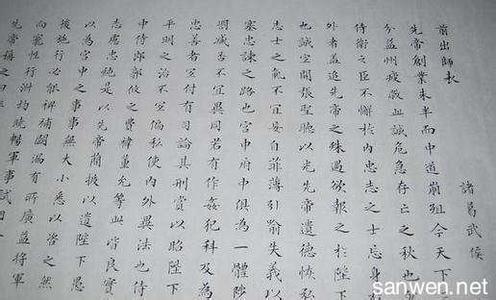 前出師表
諸葛武侯
先帝創業未半而中道崩殂今天下
今益州疲敝此誠危急存亡之秋也
侍衛之臣不懈於內忠志之士忘身
外者蓋追先帝之殊遇欲報之於陛下
也誠宜開張聖聽以光先帝遺德恢
士之氣不宜妄自菲薄引喻失義以
塞忠諫之路也宮中府中俱為一體陟
罰臧否不宜異同若有作姦犯科及為
忠善者宜付有司論其刑賞以昭陛下
平明之治不宜偏私使內外異法也侍
中侍郎郭攸之費褘董允等此皆良實
志慮忠純是以先帝簡拔以遺陛下愚
以為宮中之事事無大小悉以咨之然
後施行必能裨補闕漏有所廣益將軍
向寵性行淑均曉暢軍事試用
先帝稱之曰
sanwen.net